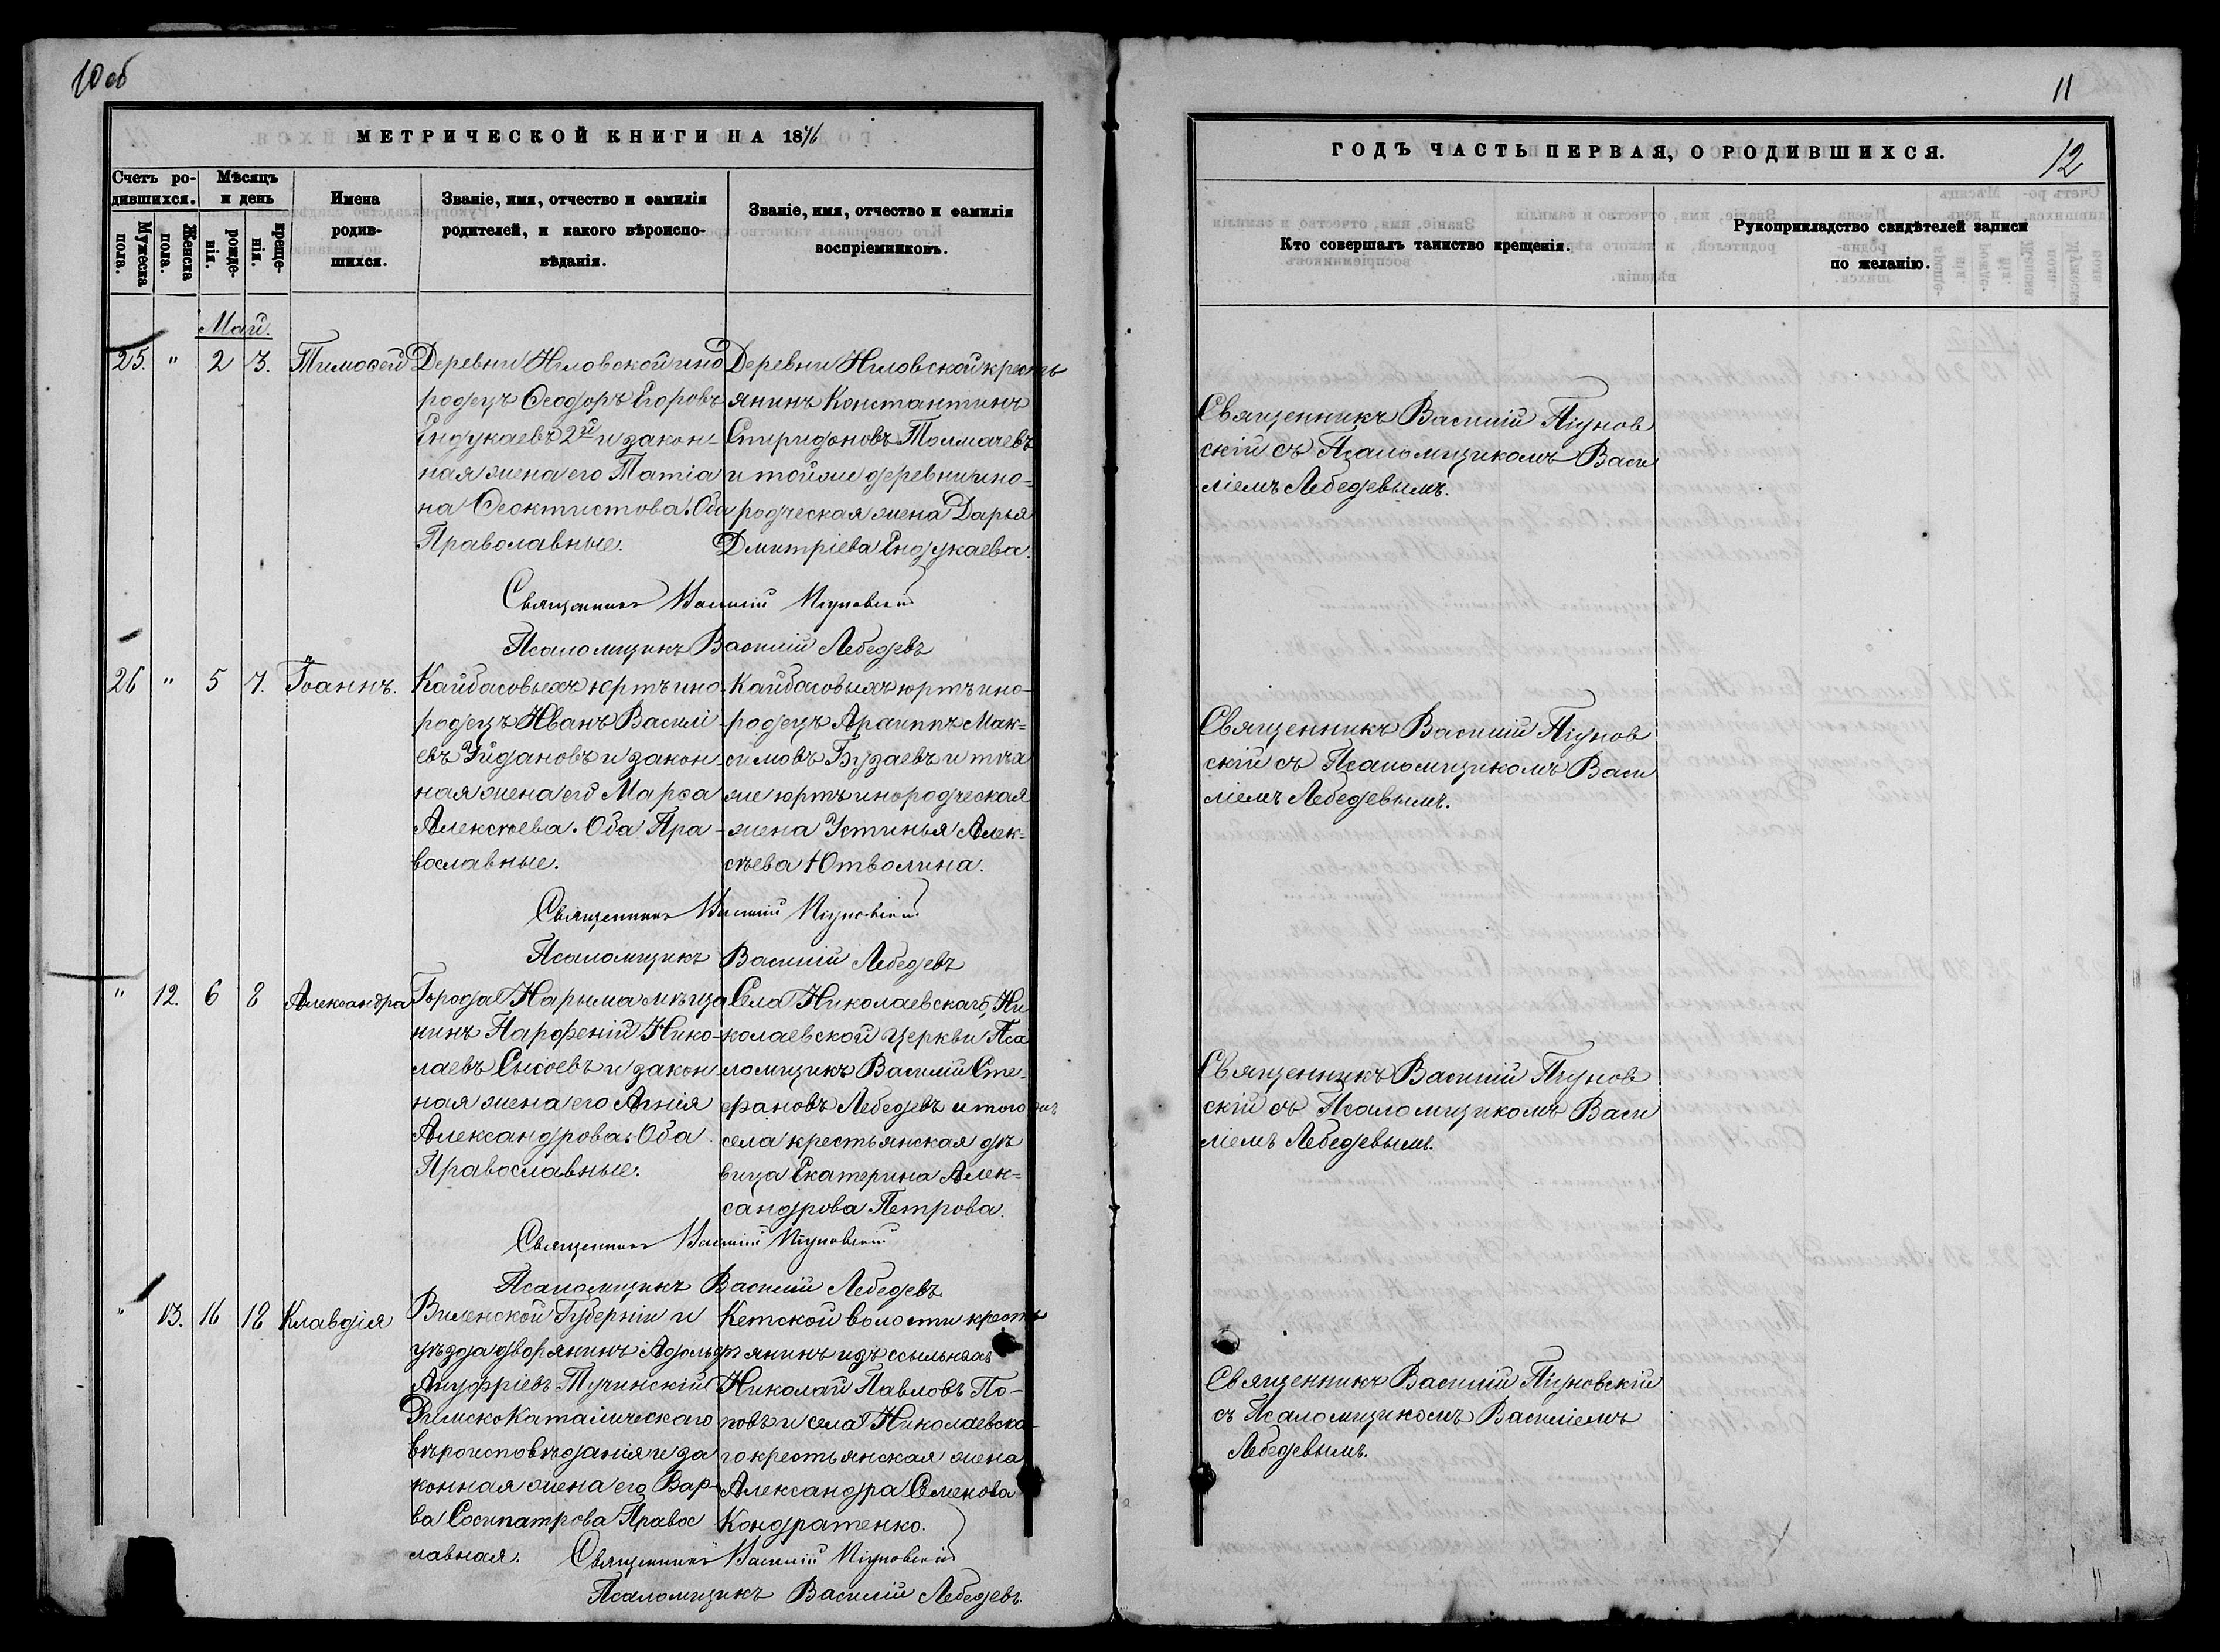 10 об
МЕТРИЧЕСКОЙ КНИГИ НА 1876
Счетъ ро-
дившихся.
Мѣсяцъ
и день
Мужеска
пола.
Женска
пола.
рожде-
нія.
креще-
нія.
Имена
родив-
шихся.
Званіе, имя, отчество и фамилія
родителей, и какого вѣроиспо-
вѣданія.
Званіе, имя, отчество и фамилія
воспріемниковъ.
Май.
25. " 2 3. Тимоѳей
Деревни Иловской ино
родецъ Ѳеодоръ Егоровъ
Ендукаевъ 2й и закон-
ная жена его Татіа
на Ѳеоктистова. Оба
Православные.
Деревни Иловской кресть
янинъ Константинъ
Спиридоновъ Толмачевъ
и той же деревни ино-
родческая жена Дарья
Дмитріева Ендукаева.
Священникъ Василій Пѣуновскій
Псаломщикъ Василій Лебедевъ
26 " 5 7. Іоаннъ.
Кайбасовыхъ юртъ ино-
родецъ Иванъ Василі-
евъ Уйдановъ и закон-
ная жена его Марѳа
Алексѣева. Оба Пра-
вославные.
Кайбасовыхъ юртъ ино-
родецъ Архиппъ Мак-
симовъ Бузаевъ и тѣхъ
же юртъ инородческая
жена Устинья Алек-
сѣева Ютволина.
Священникъ Василій
Псаломщикъ Василій Лебедевъ
" 12. 6 8 Александра
Города Нарыма мѣща
нинъ Парфеній Нико-
лаевъ Сысоевъ и закон
ная жена его Агнія
Александрова. Оба
Православные.
Села Николаевскаго, Ни
колаевской церкви Пса
ломщикъ Василій Сте-
фановъ Лебедевъ и того же
села крестьянская дѣ
вица Екатерина Алек-
сандрова Петрова.
Священникъ Василій
Псаломщикъ Василій Лебедевъ.
" 13. 16 18 Клавдія
Виленской Губерніи и
уѣзда дворянинъ Адольфъ
Ануфріевъ Тучинскій
Римско Католическаго
вѣроисповѣданія и за
конная жена его Вар-
ва Сосипатрова Правос
лавная.
Кетской волости кресть
янинъ изъ ссыльныхъ
Николай Павловъ По-
повъ и села Николаевска-
го крестьянская жена
Александра Семенова
Кондратенко.
Священникъ Василій
Псаломщикъ Василій Лебедевъ.
11
ГОДЪ ЧАСТЬ ПЕРВАЯ, О РОДИВШИХСЯ.
12
Кто совершалъ таинство крещенія.
Рукоприкладство свидѣтелей записи
по желанію.
Священникъ Василій
скій съ Псаломщикомъ Васи
ліемъ Лебедевымъ.
Священникъ Василій
скій съ Псаломщикомъ Васи
ліемъ Лебедевымъ.
Священникъ Василій
скій съ Псаломщикомъ Васи
ліемъ Лебедевымъ.
Священникъ Василій
съ Псаломщикомъ Василіемъ
Лебедевымъ.